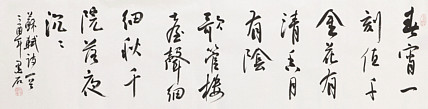 春宵一
刻值千
金花有
清香月
有陰
歌管樓
臺聲細
細秋千
院落夜
沉〻
蘇軾詩一首